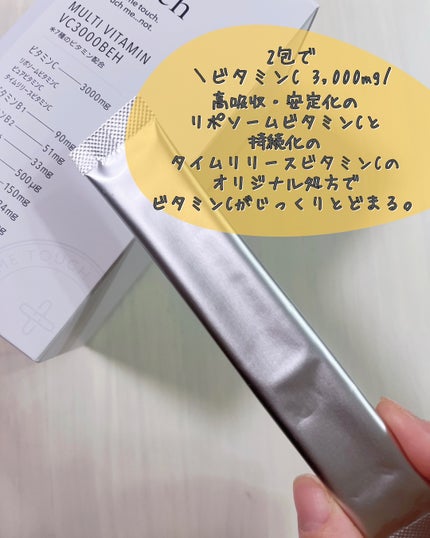 ch
me touch.
ach me...not.
MULTI VITAMIN
VC3000BEH
*7種のビタミン配合
ビタミンC 3000mg
リポソームビタミンC
ピュアビタミンC
タイムリリースビタミンC
ビタミンB1 90mg
B2 51mg
33mg
500μg
150mg
24mg
mg
ME TOUCH
2包で
\ビタミンC 3,000mg/
高吸収・安定化の
リポソームビタミンCと
持続化の
タイムリリースビタミンCの
オリジナル処方で
ビタミンCがじっくりとどまる。